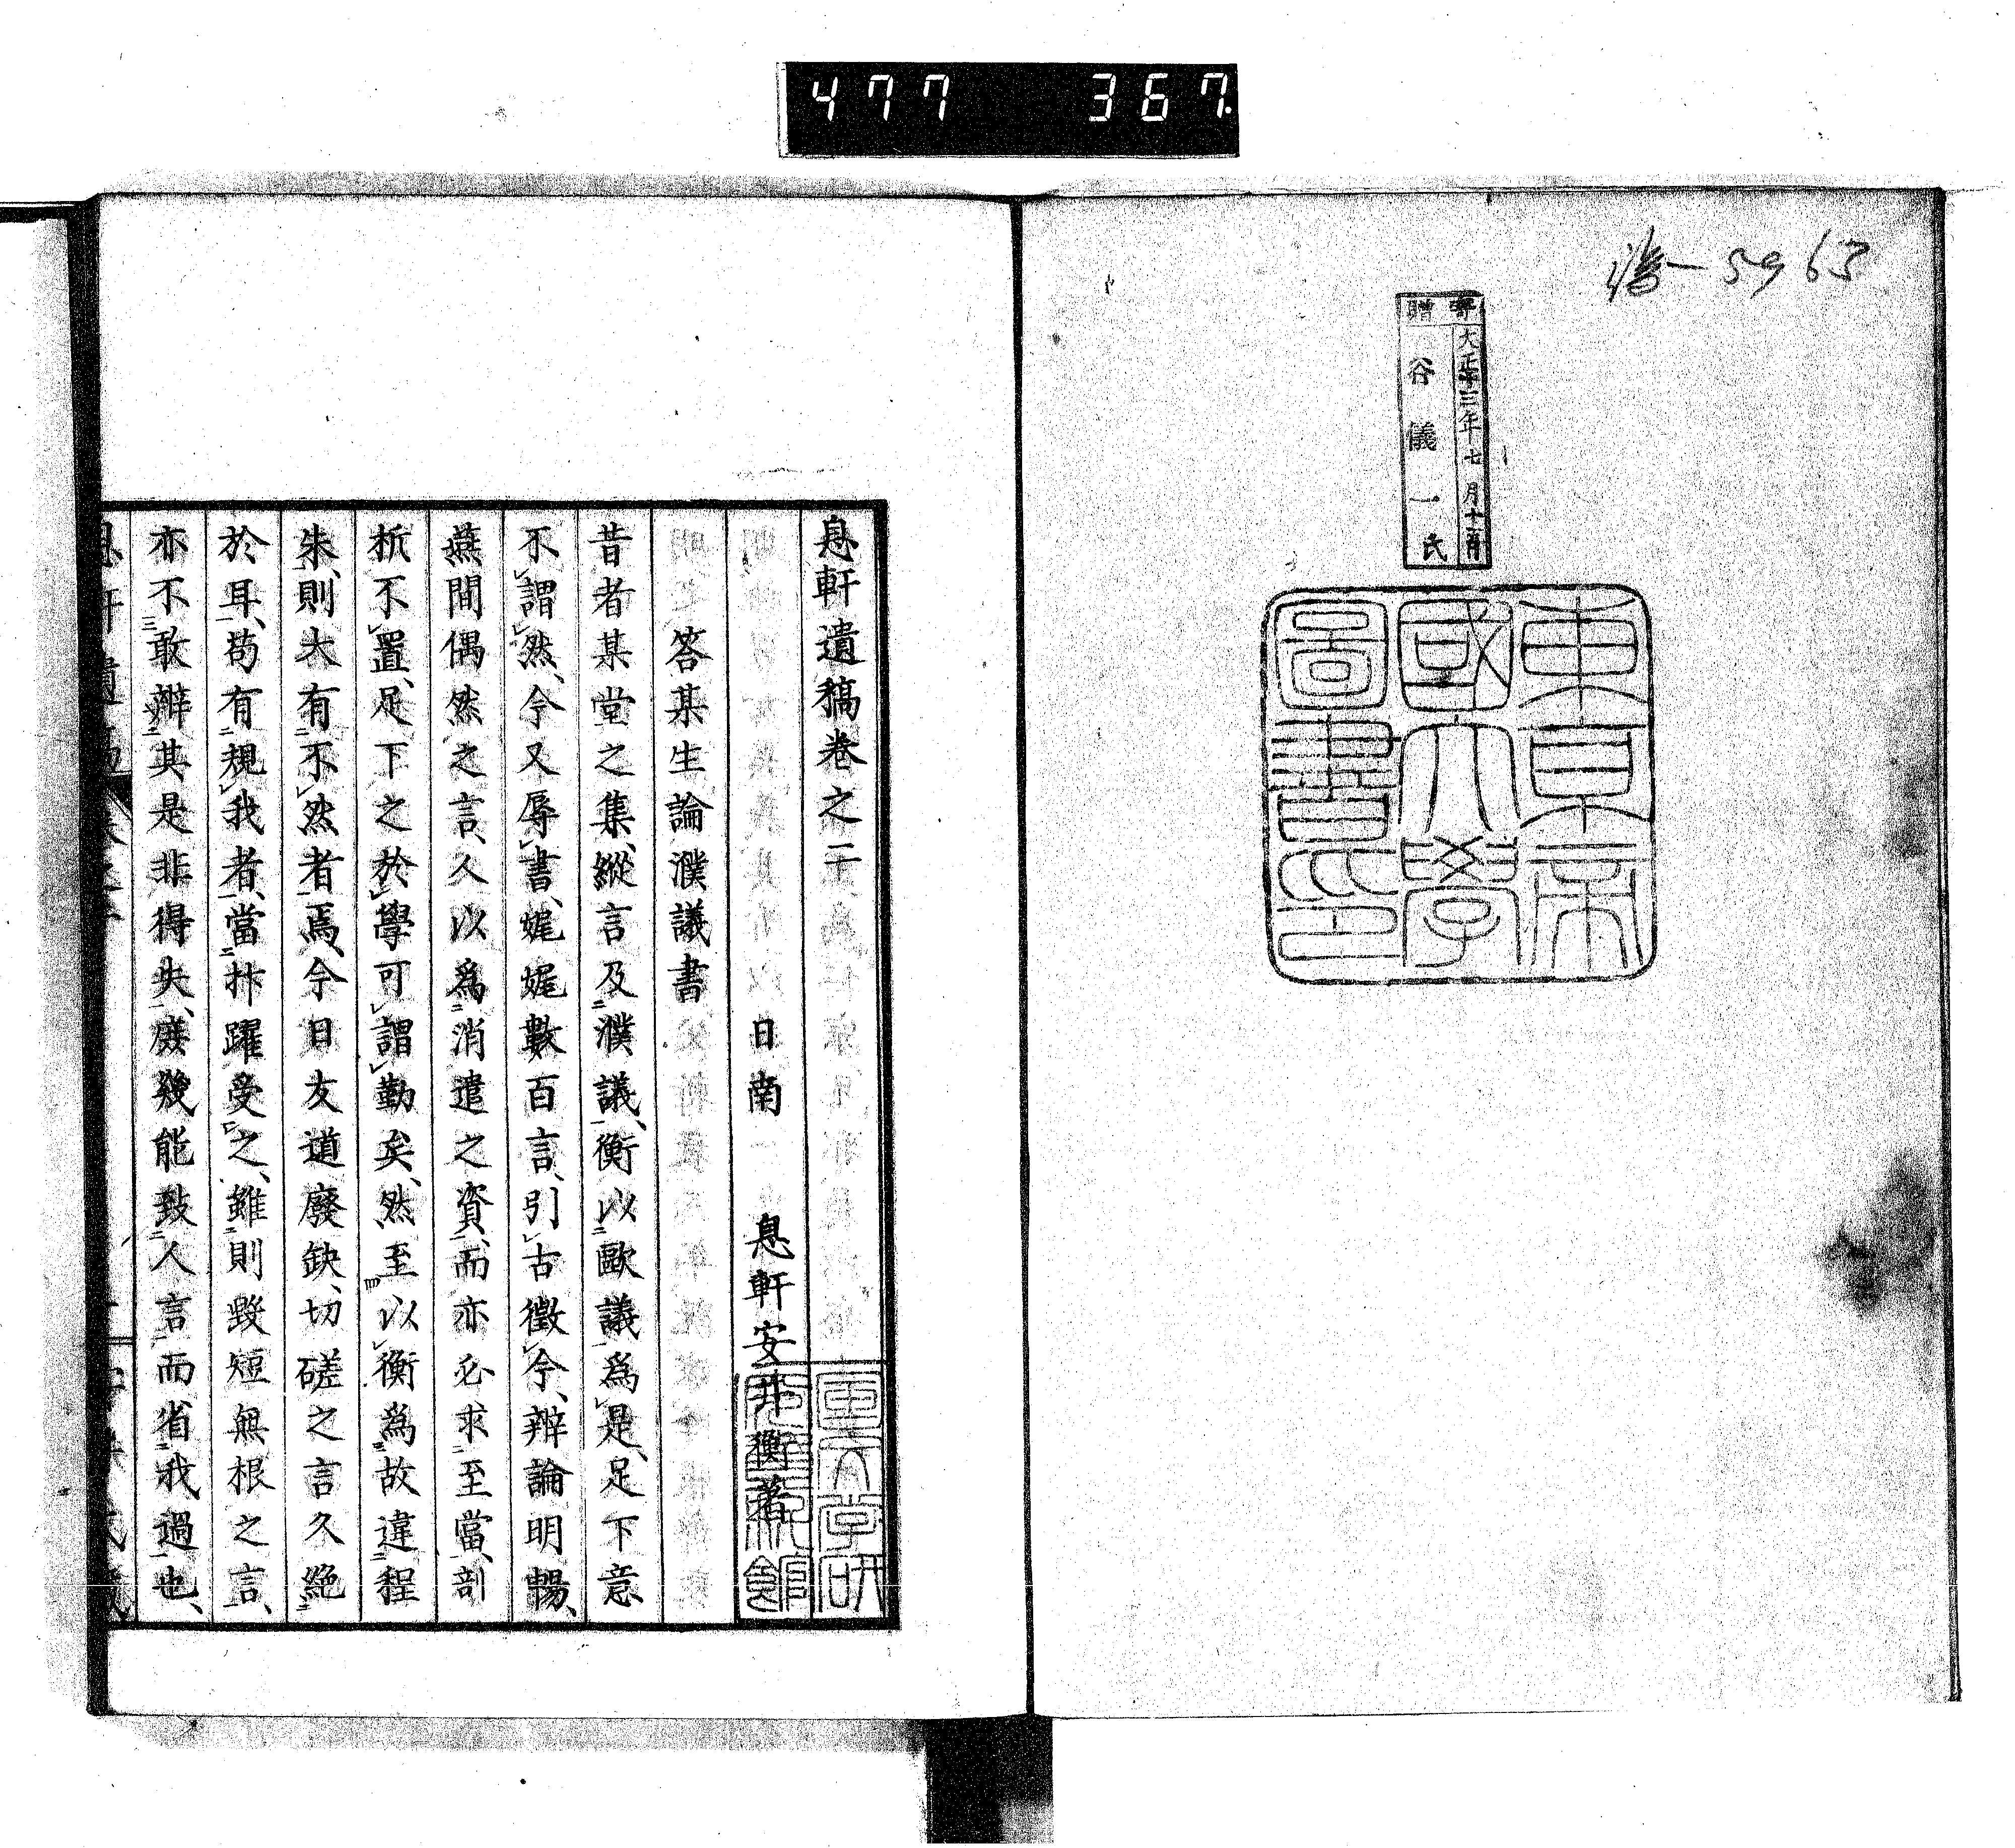 477 367.
5963
寄贈
大正十三年七月十二日
谷儀一氏
東京帝
國大學
圖書印
息軒遺稿卷之二
日南 息軒安井衡著
答某生論濮議書
昔者某堂之集、縱言及濮議、衡以歐議爲是、足下意
不謂然、今又辱書、娓娓數百言、引古徵今、辨論明暢、
燕間偶然之言、久以爲消遣之資、而亦必求至當、剖
析不置、足下之於學可謂勤矣、然至以衡爲故違程
朱、則大有不然者焉、今日友道廢缺、切磋之言久絶
於耳、苟有規我者、當抃躍受之、雖則毀短無根之言、
亦不敢辨其是非得失、庶幾能致人言而省我過也、